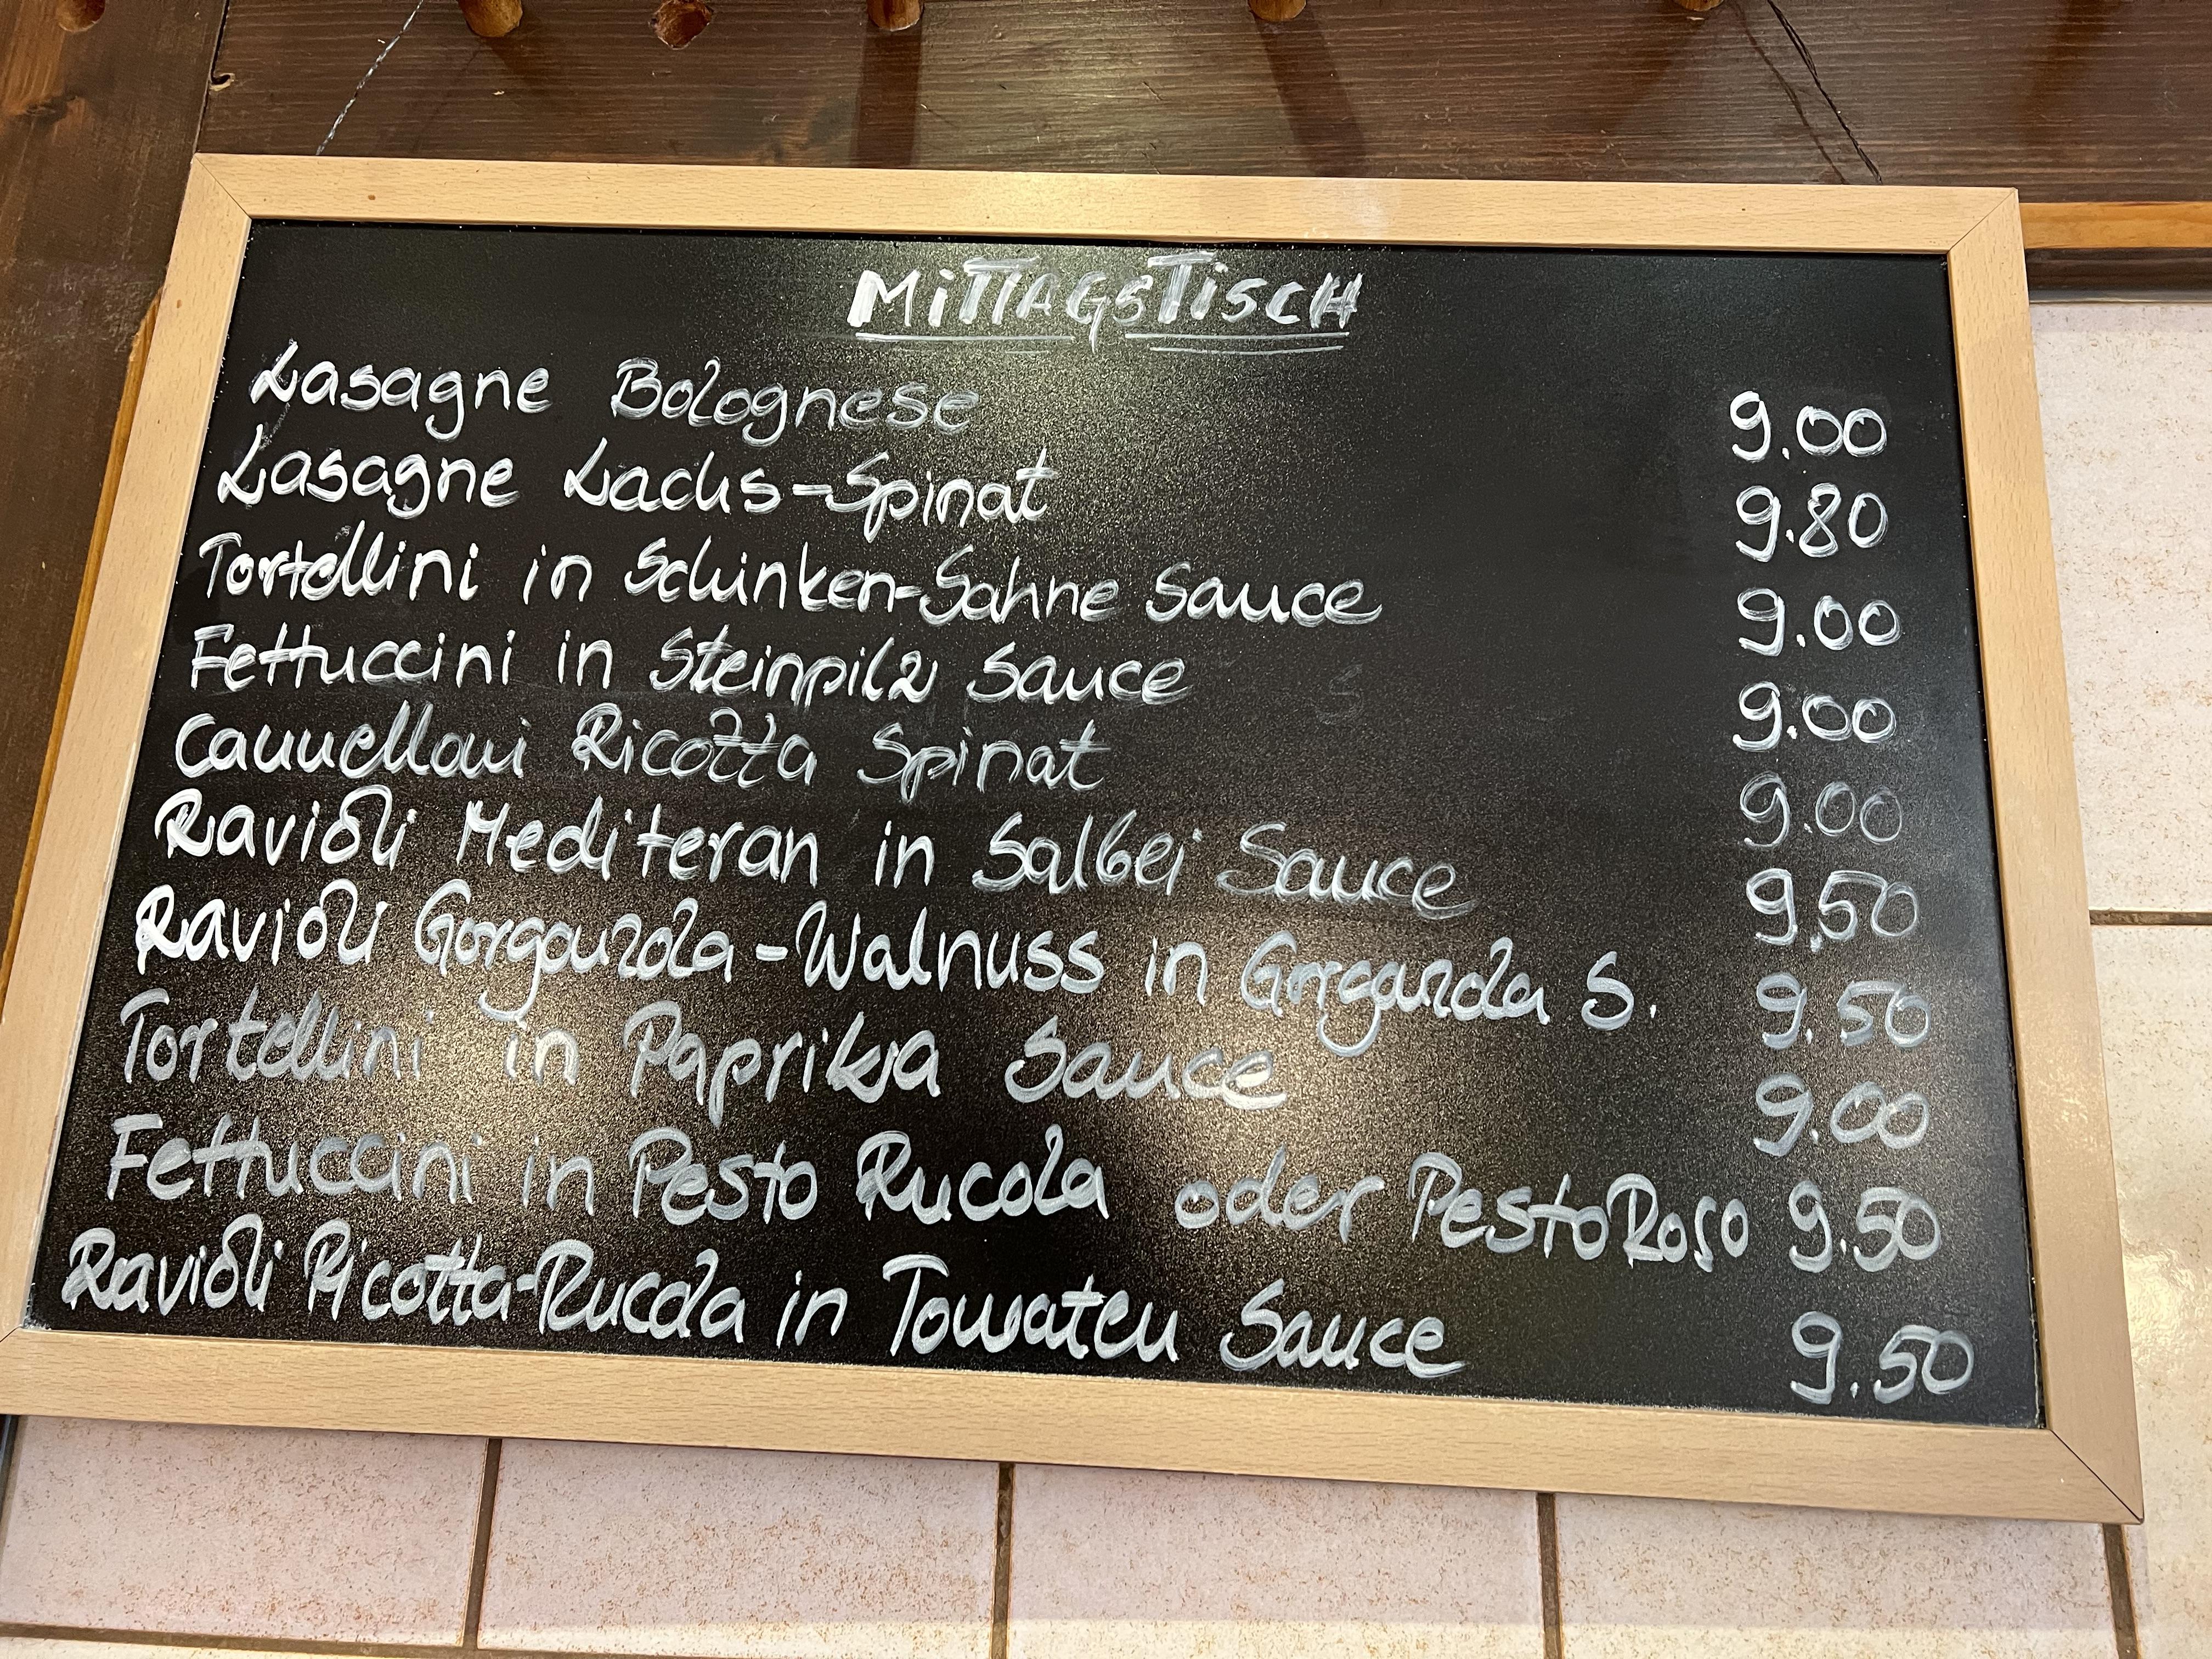 MiTTAGSTiSCH
Lasagne Bolognese 9.00
Lasagne Lachs-Spinat 9.80
Tortellini in Schinken-Sahne Sauce 9.00
Fettuccini in Steinpilz Sauce 9.00
Cannelloni Ricotta Spinat 9.00
Ravioli Mediteran in Salbei Sauce 9,50
Ravioli Gorgonzola-Walnuss in Gorgonzola S. 9.50
Tortellini in Paprika Sauce 9.00
Fettuccini in Pesto Rucola oder Pesto Roso 9.50
Ravioli Ricotta-Rucola in Tomaten Sauce 9.50